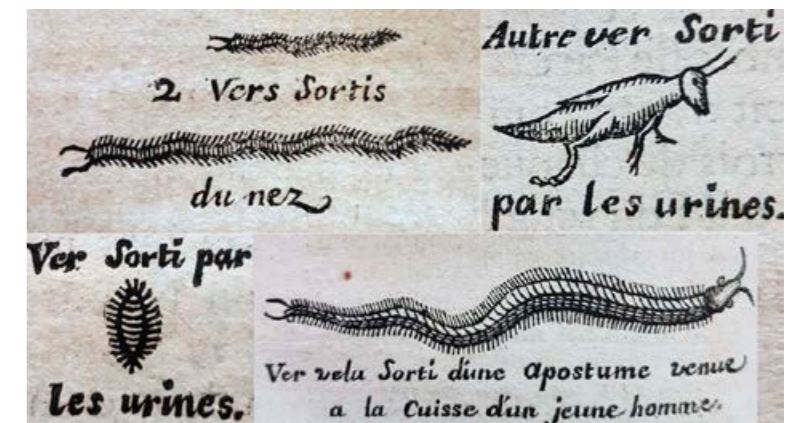 2 Vers Sortis
du nez
Autre ver Sorti
par les urines.
Ver Sorti par
les urines.
Ver velu Sorti d'une apostume venue
a la Cuisse d'un jeune homme.